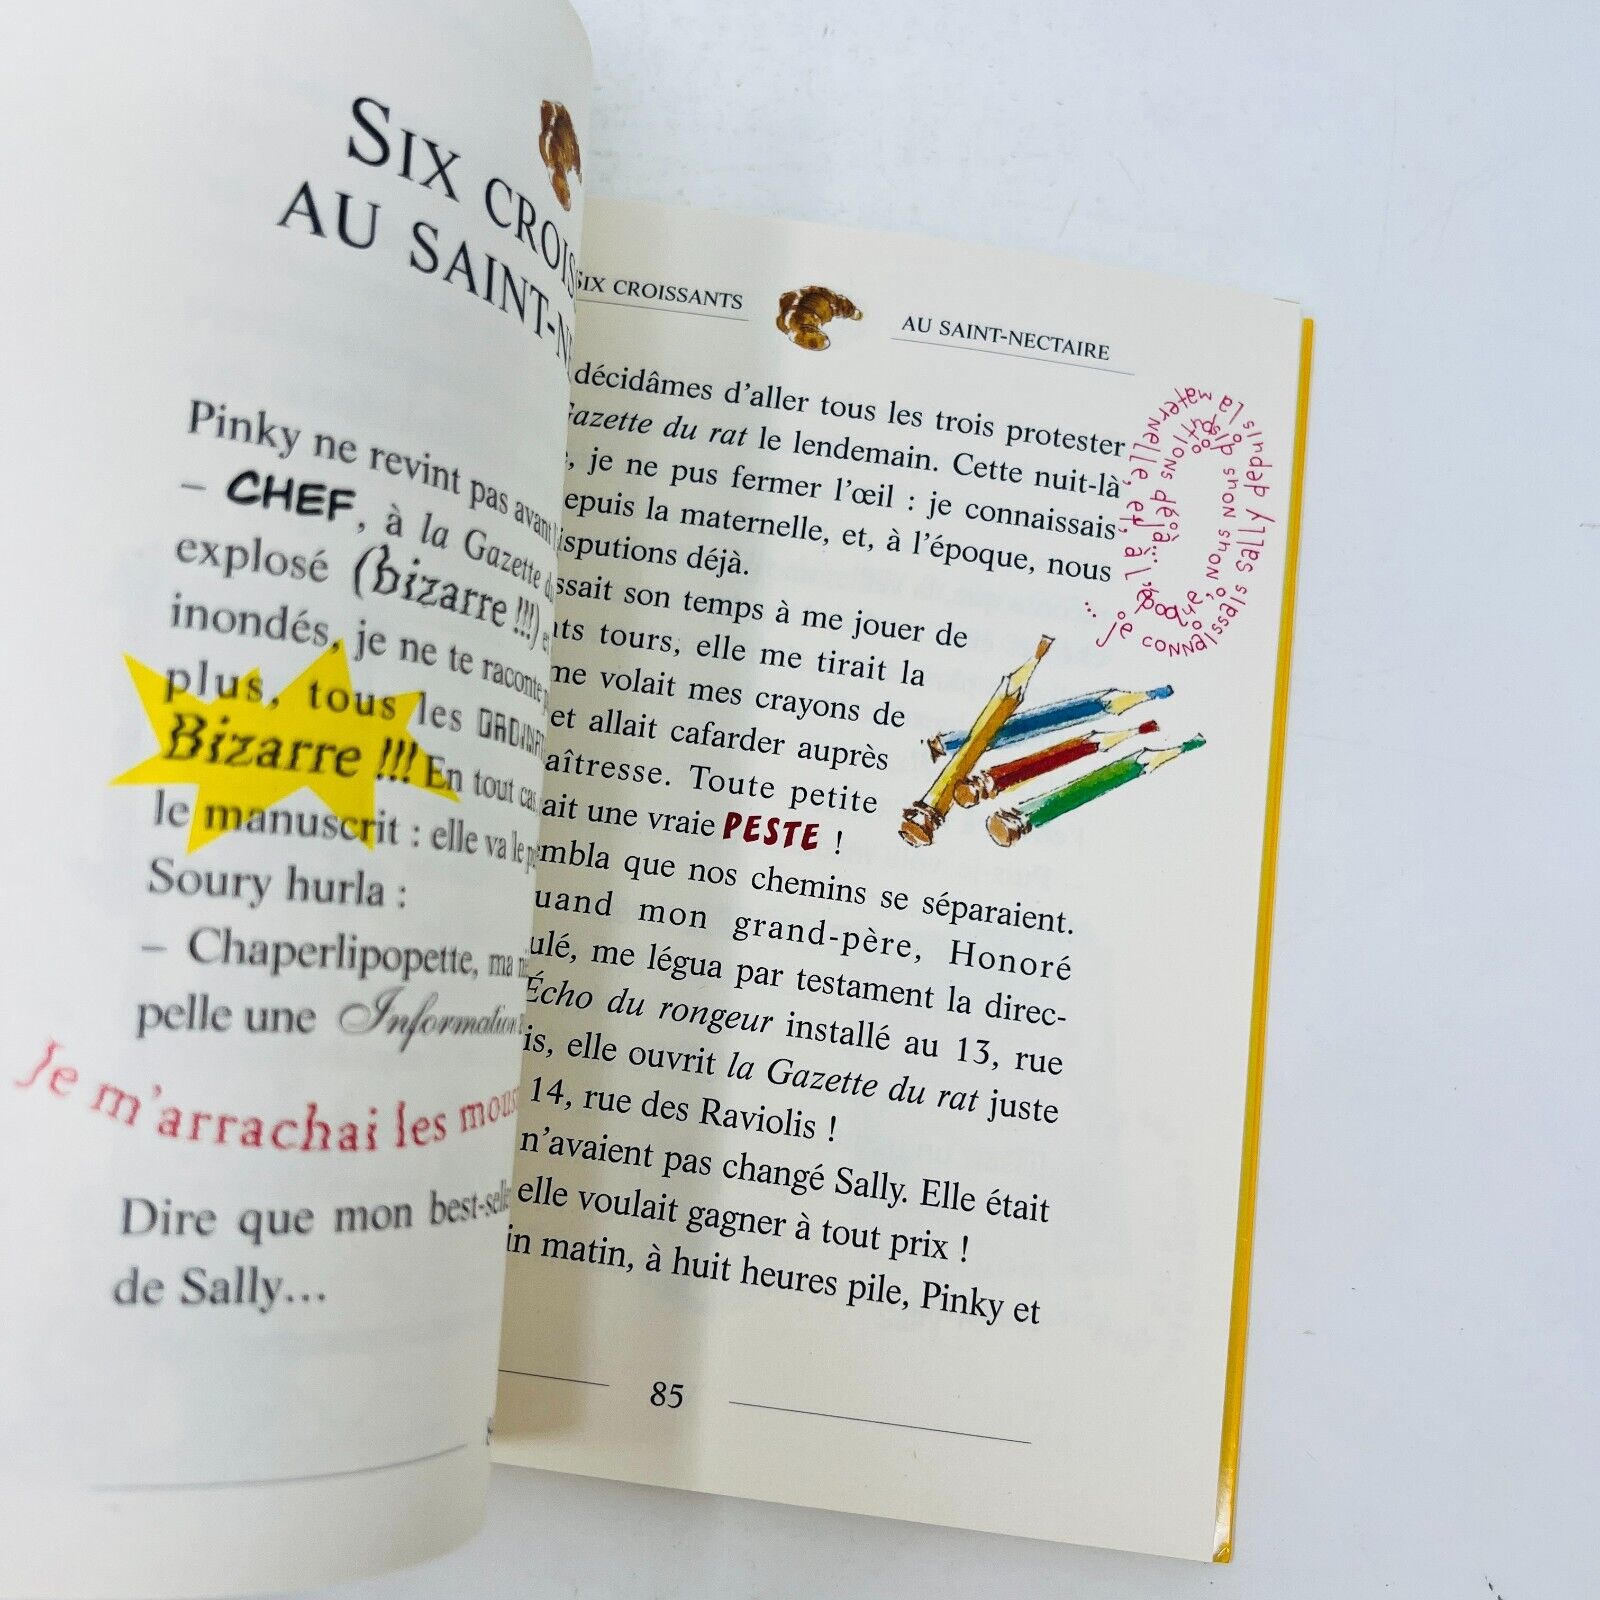 SIX
AU SAINT-
Pinky ne revint pas avant
– CHEF, à la Gazette
explosé (bizarre !!!)
inondés, je ne te raconte
plus, tous les
Bizarre !!! En tout cas
le manuscrit : elle va le
Soury hurla :
– Chaperlipopette, ma
pelle une Information
Je m'arrachai les
Dire que mon best-
de Sally...
SIX CROISSANTS
AU SAINT-NECTAIRE
décidâmes d'aller tous les trois protester
Gazette du rat le lendemain. Cette nuit-là
, je ne pus fermer l'œil : je connaissais
epuis la maternelle, et, à l'époque, nous
isputions déjà.
ssait son temps à me jouer de
nts tours, elle me tirait la
me volait mes crayons de
et allait cafarder auprès
aîtresse. Toute petite
ait une vraie PESTE !
mbla que nos chemins se séparaient.
uand mon grand-père, Honoré
ulé, me légua par testament la direc-
Écho du rongeur installé au 13, rue
is, elle ouvrit la Gazette du rat juste
14, rue des Raviolis !
n'avaient pas changé Sally. Elle était
elle voulait gagner à tout prix !
in matin, à huit heures pile, Pinky et
... je connaissais Sally depuis la maternelle, et, à l'époque, nous nous disputions déjà...
85